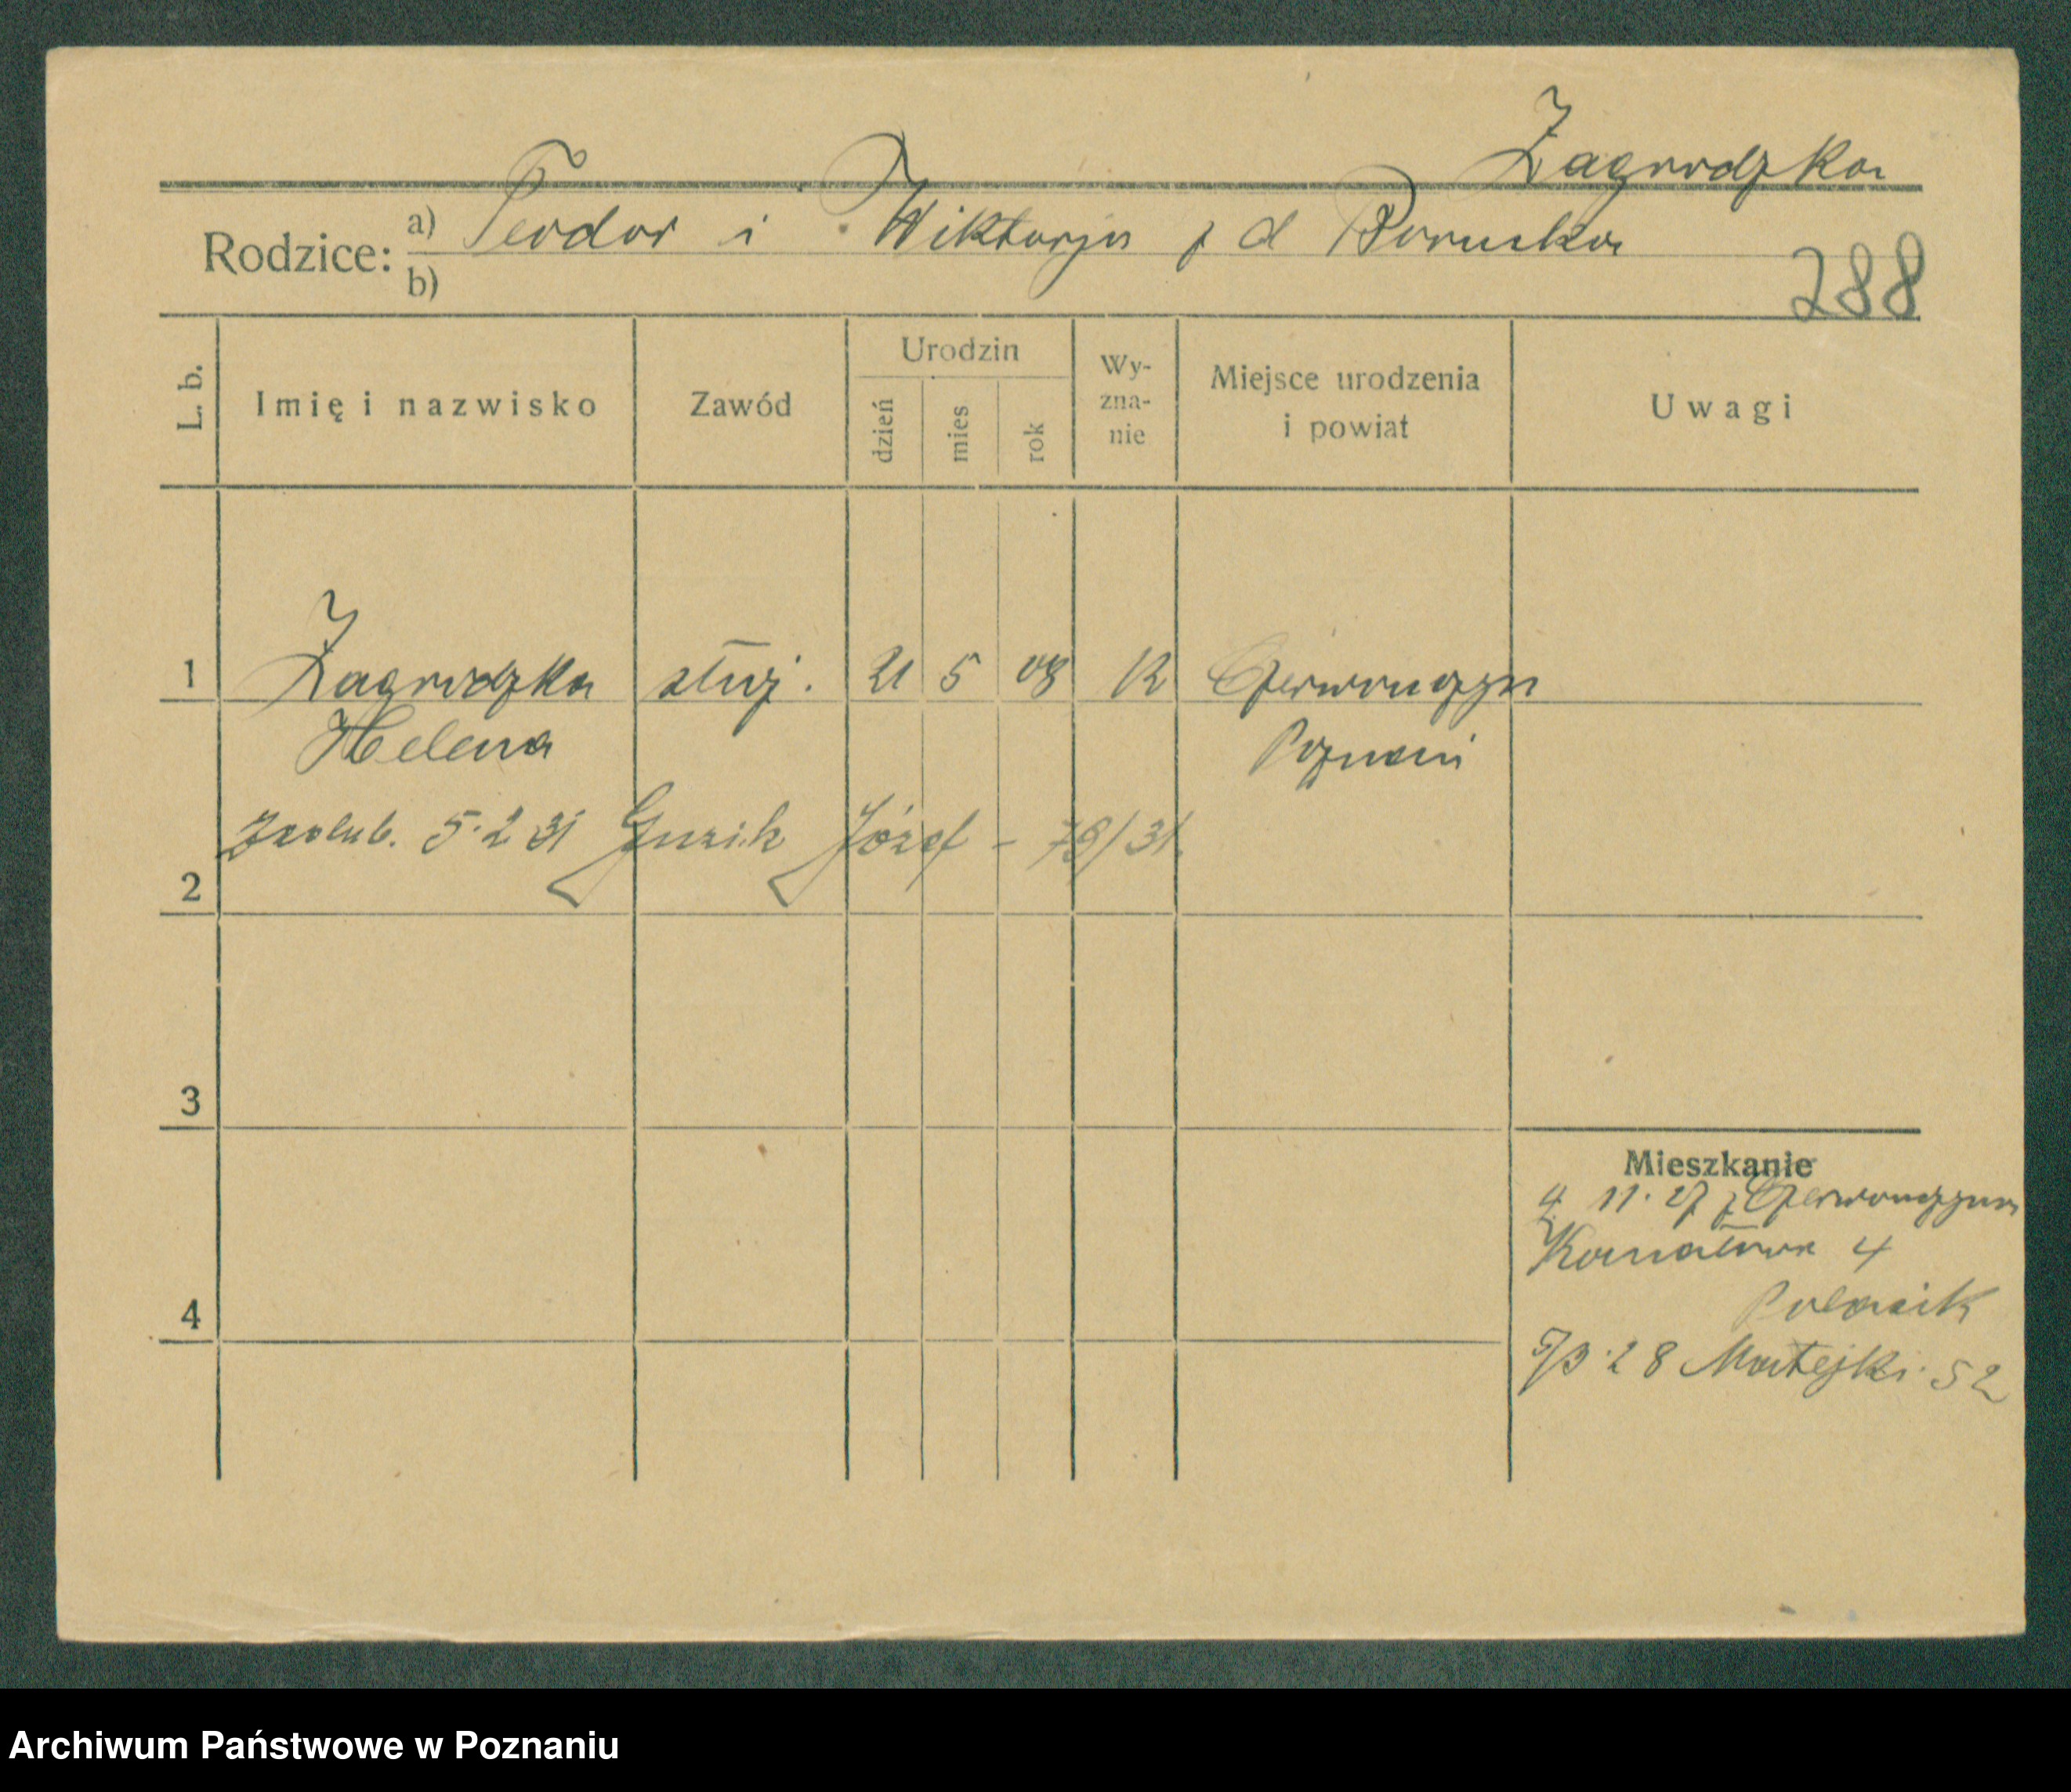 Zagrodzka
Rodzice: a) Teodor i Wiktorja z d Boruska
b)
288
L. b.
Imię i nazwisko
Zawód
Urodzin
dzień
mies
rok
Wy-
zna-
nie
Miejsce urodzenia
i powiat
Uwagi
1 Zagrodzka służ. 21 5 08 K
Helena Poznań
Zaślub. 5.2 31 Guzik Józef - 78/31.
2
3
4
Mieszkanie
4 11.27 z
Kanałowa 4
7/3.28 Matejki 52
Archiwum Państwowe w Poznaniu